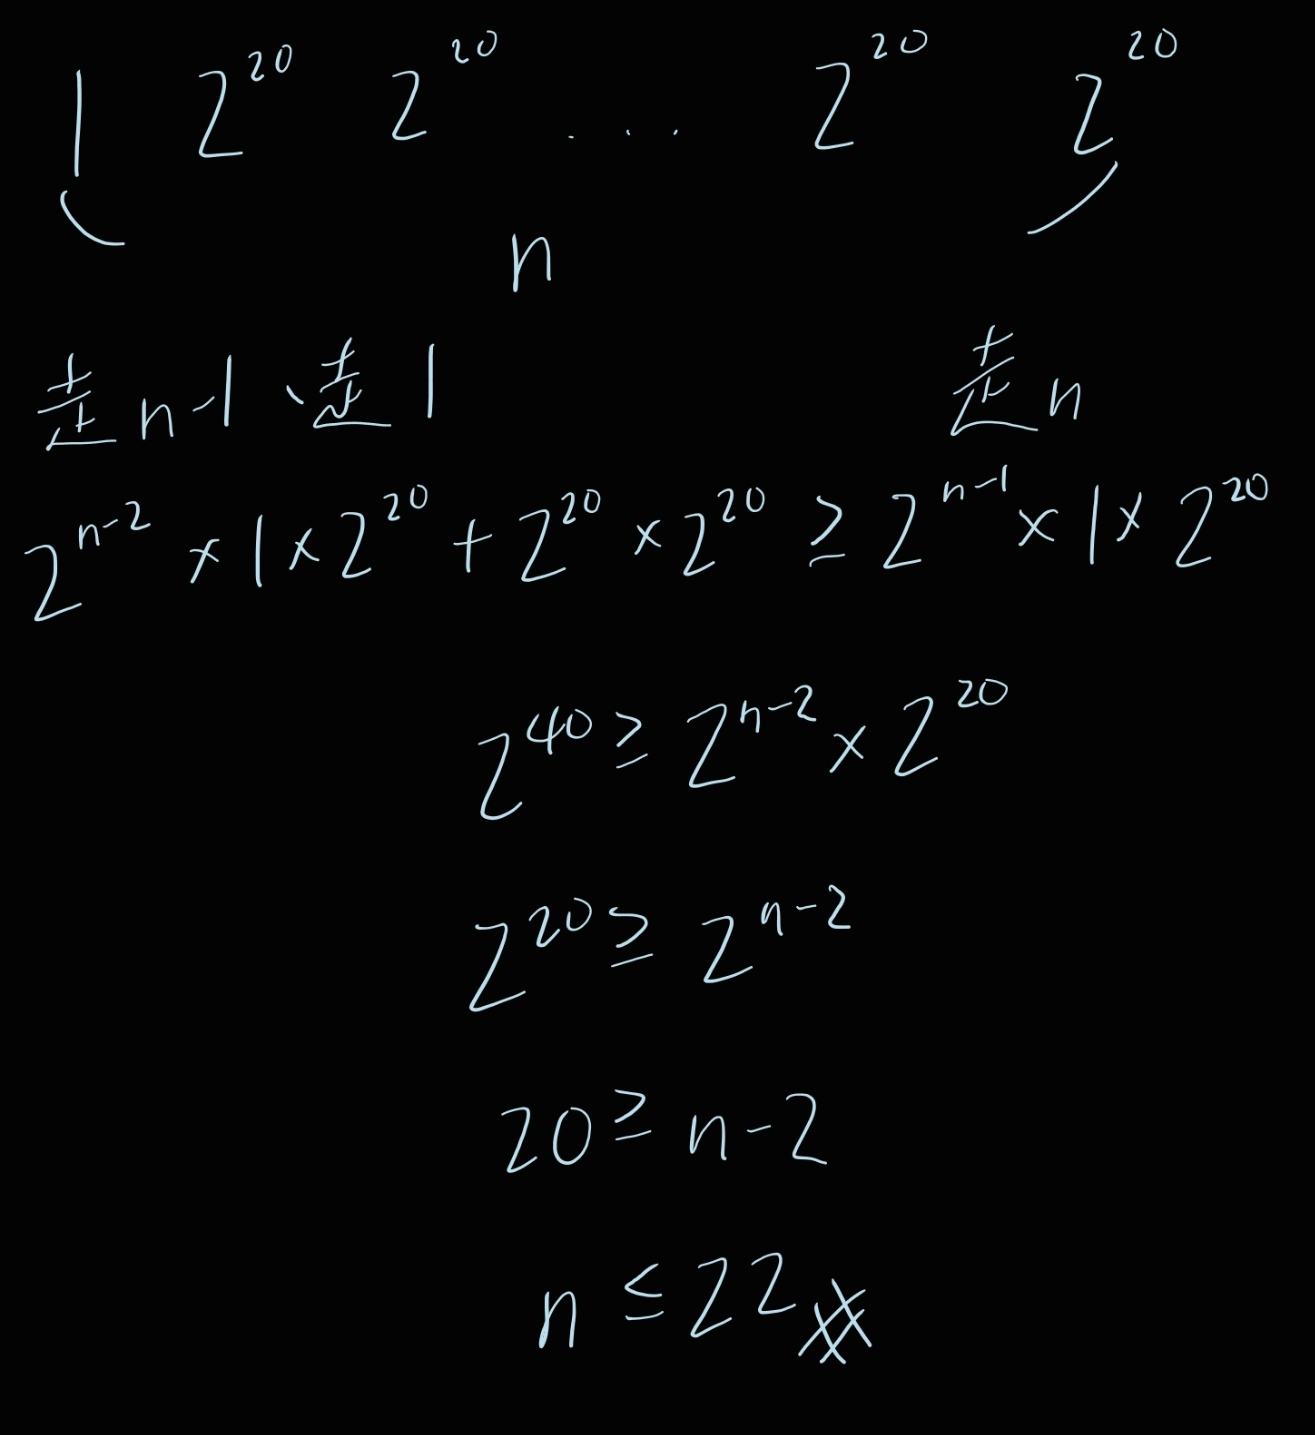 1 2^20 2^20 ... 2^20 2^20
n
走 n-1、走 1 走 n
2^{n-2} × 1 × 2^20 + 2^20 × 2^20 ≥ 2^{n-1} × 1 × 2^20
2^40 ≥ 2^{n-2} × 2^20
2^20 ≥ 2^{n-2}
20 ≥ n-2
n ≤ 22